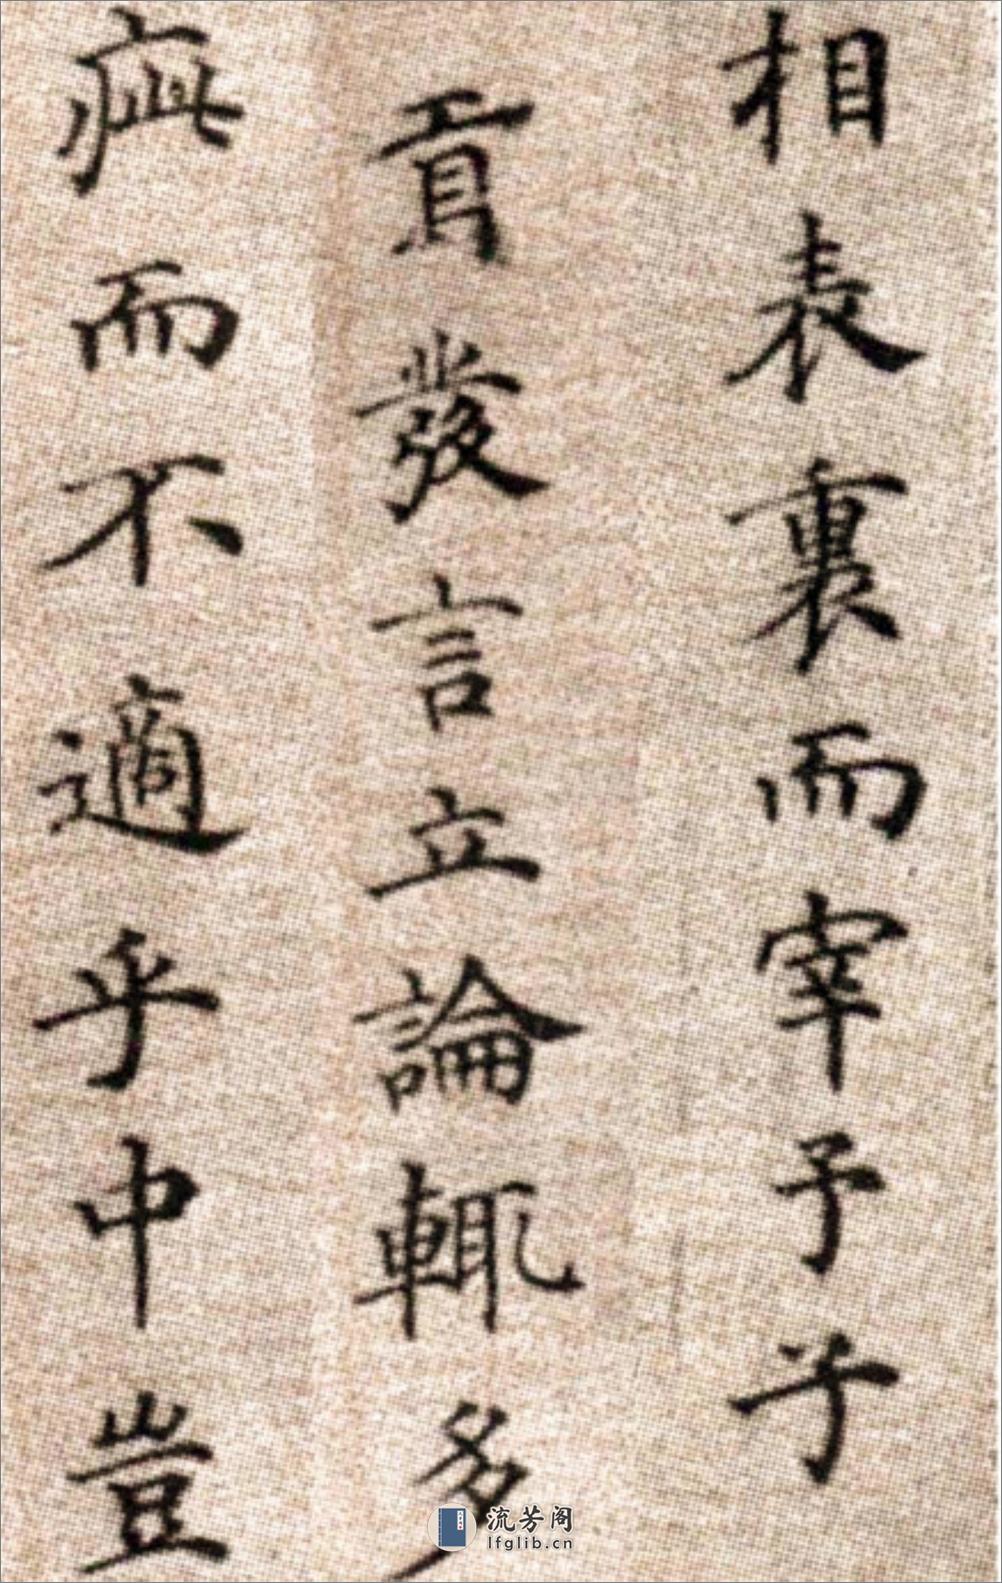 相表裏而宰予子
貢發言立論輒多
疵而不適乎中豈
流芳阁
lfglib.cn